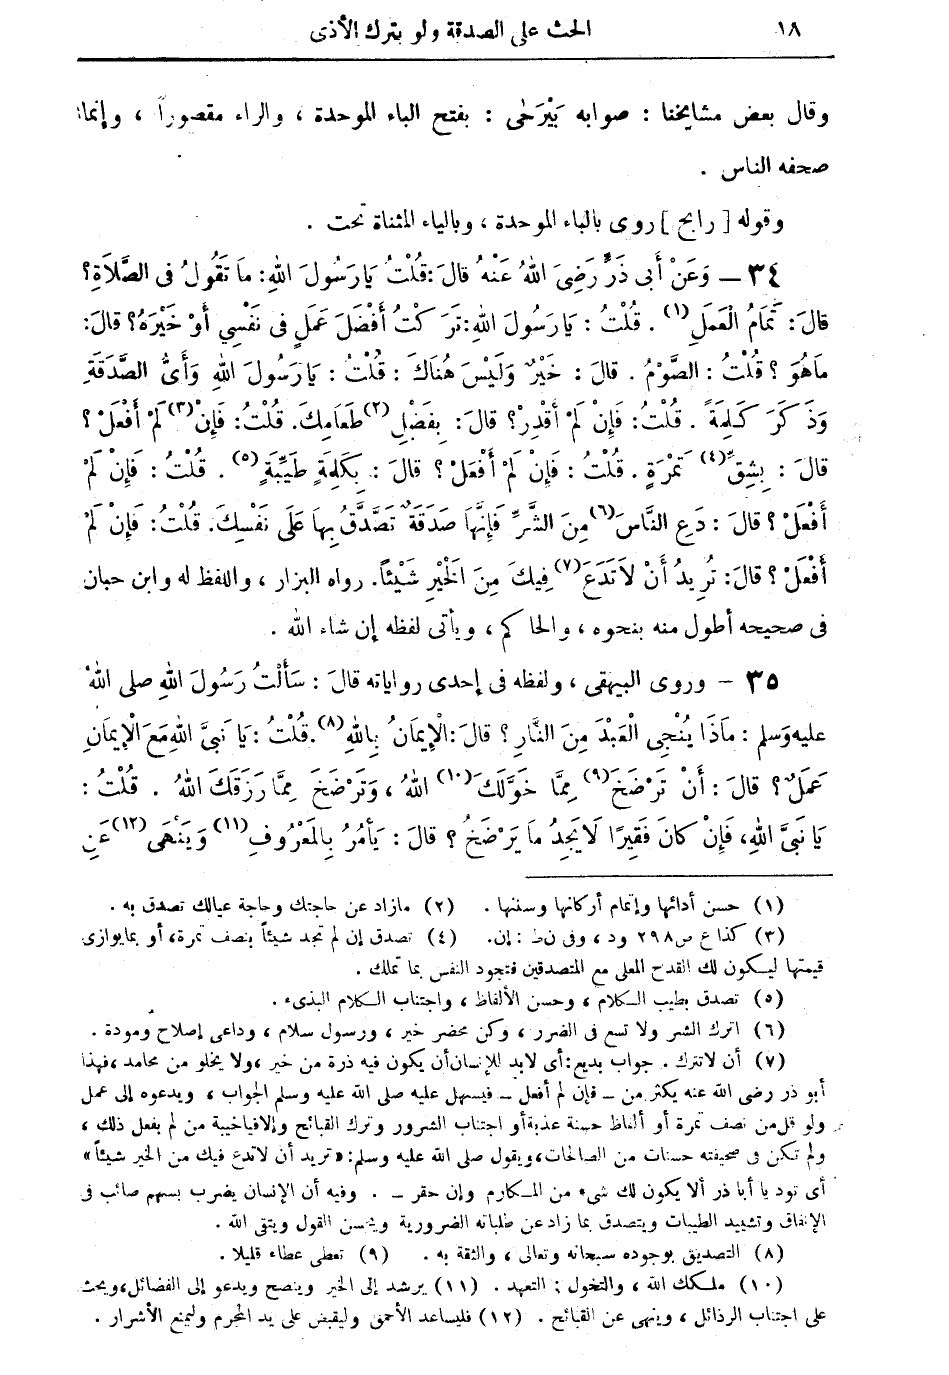 ١٨ الحث على الصدقة ولو بترك الأذى
وقال بعض مشايخنا : صوابه بَيْرَحَٰى : بفتح الباء الموحدة ، والراء مقصوراً ، وإنما
صحفه الناس .
وقوله [ رابح ] روى بالباء الموحدة ، وبالياء المثناة تحت .
٣٤ – وَعَنْ أَبِى ذَرٍّ رَضِىَ اللهُ عَنْهُ قالَ: قُلْتُ يَارَسُولَ اللهِ: مَا تَقُولُ فى الصَّلَاَةِ؟
قالَ: تَمَامُ الْعَمَلِ(١) . قُلْتُ : يَارَسُولَ اللهِ: تَرَكْتُ أَفْضَلَ عَمَلٍ فى نَفْسِى أَوْ خَيْرَهُ؟ قالَ:
مَاهُوَ ؟ قُلْتُ : الصَّوْمُ . قالَ : خَيْرٌ وَلَيْسَ هُنَاكَ : قُلْتُ : يَارَسُولَ اللهِ وَأَىُّ الصَّدَقَةِ
وَذَكَرَ كَلِمَةً . قُلْتُ: فَإِنْ لَمْ أَقْدِرْ؟ قالَ: بِفَضْلِ(٢) طَعَامِكَ. قُلْتُ: فَإِنْ(٣) لَمْ أَفْعَلْ ؟
قالَ : بِشِقِّ(٤) تَمْرَةٍ . قُلْتُ : فَإِنْ لَمْ أَفْعَلْ ؟ قالَ : بِكَلِمَةٍ طَيِّبَةٍ(٥) . قُلْتُ : فَإِنْ لَمْ
أَفْعَلْ ؟ قالَ : دَعِ النَّاسَ(٦) مِنَ الشَّرِّ فَإِنَّهَا صَدَقَةٌ تَصَدَّقُ بِهَا عَلَى نَفْسِكَ. قُلْتُ: فَإِنْ لَمْ
أَفْعَلْ ؟ قالَ: تُرِيدُ أَنْ لاَتَدَعَ(٧) فِيكَ مِنَ الْخَيْرِ شَيْئاً. رواه البزار ، واللفظ له وابن حبان
فى صحيحه أطول منه بنحوه ، والحاكم ، ويأتى لفظه إن شاء الله .
٣٥ – وروى البيهقى ، ولفظه فى إحدى رواياته قالَ : سَأَلْتُ رَسُولَ اللهِ صلى اللهُ
عليه وَسلم : مَاذَا يُنْجِى الْعَبْدَ مِنَ النَّارِ ؟ قالَ: الْإِيمَانُ بِاللهِ(٨). قُلْتُ : يَا نَبِىَّ اللهِ مَعَ الْإِيمَانِ
عَمَلٌ ؟ قالَ : أَنْ تَرْضَخَ(٩) مِمَّا خَوَّلَكَ(١٠) اللهُ ، وَتَرْضَخَ مِمَّا رَزَقَكَ اللهُ . قُلْتُ :
يَا نَبِىَّ اللهِ، فَإِنْ كَانَ فَقِيرًا لَا يَجِدُ مَا يَرْضَخُ ؟ قالَ : يَأْمُرُ بِالْمَعْرُوفِ(١١) وَيَنْهَى(١٢) عَنِ
(١) حسن أدائها وإتمام أركانها وسننها . (٢) مازاد عن حاجتك وحاجة عيالك تصدق به .
(٣) كذا ع ص ٢٩٨ ود ، وفى ن ط : إن. (٤) تصدق إن لم تجد شيئاً بنصف تمرة، أو بما يوازى
قيمتها ليكون لك القدح المعلى مع المتصدقين فتجود النفس بما تملك .
(٥) تصدق بطيب الكلام ، وحسن الألفاظ ، واجتناب الكلام البذىء .
(٦) اترك الشر ولا تسع فى الضرر ، وكن محضر خير ، ورسول سلام ، وداعى إصلاح ومودة .
(٧) أن لاتترك . جواب بديع: أى لابد للإنسان أن يكون فيه ذرة من خير ، ولا يخلو من محامد ، فهذا
أبو ذر رضى الله عنه يكثر من – فإن لم أفعل – فيسهل عليه صلى الله عليه وسلم الجواب ، ويدعوه إلى عمل
ولو قل من نصف تمرة أو ألفاظ حسنة عذبة أو اجتناب الشرور وترك القبائح وإلا فياخيبة من لم يفعل ذلك ،
ولم تكن فى صحيفته حسنات من الصالحات، ويقول صلى الله عليه وسلم: «تريد أن لاتدع فيك من الخير شيئاً»
أى تود يا أبا ذر ألا يكون لك شىء من المكارم وإن حقر – . وفيه أن الإنسان يضرب بسهم صائب فى
الإنفاق وتشييد الطيبات ويتصدق بما زاد عن طلباته الضرورية ويحسن القول ويتقى الله .
(٨) التصديق بوجوده سبحانه وتعالى ، والثقة به . (٩) تعطى عطاء قليلا .
(١٠) ملكك الله ، والتخول : التعهد . (١١) يرشد إلى الخير وينصح ويدعو إلى الفضائل، ويحث
على اجتناب الرذائل ، وينهى عن القبائح . (١٢) فليساعد الأحمق وليقبض على يد المجرم وليمنع الأشرار .